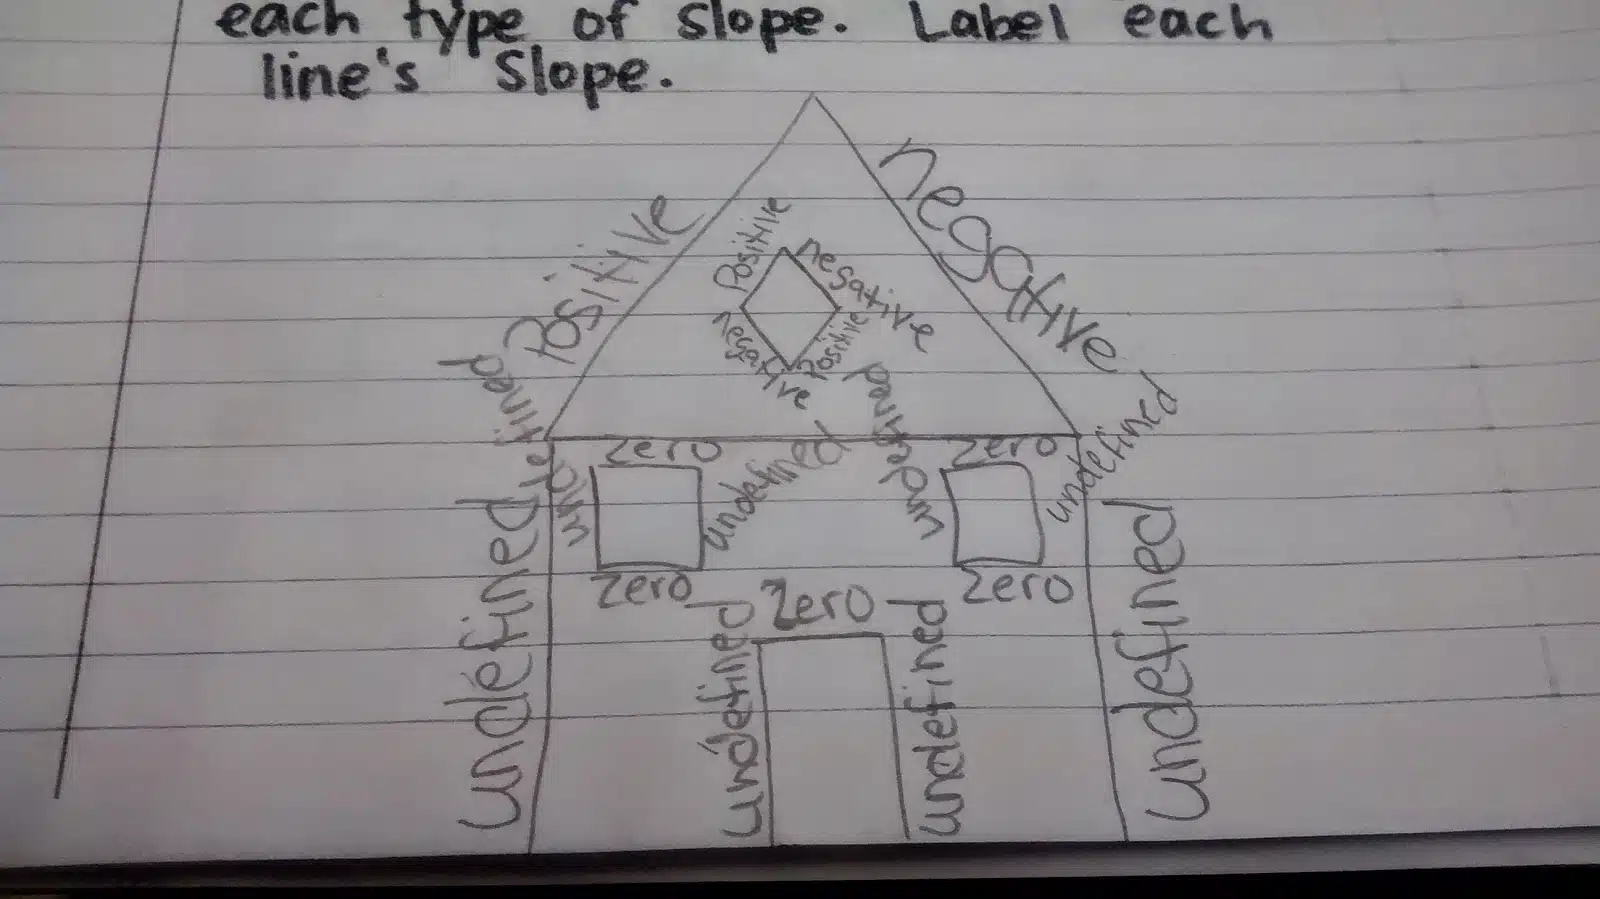 each type of slope. Label each
line's Slope.
Positive
negative
Positive
negative
negative
Positive
undefined
zero
undefined
undefined
zero
undefined
undefined
zero
zero
undefined
zero
undefined
undefined
undefined